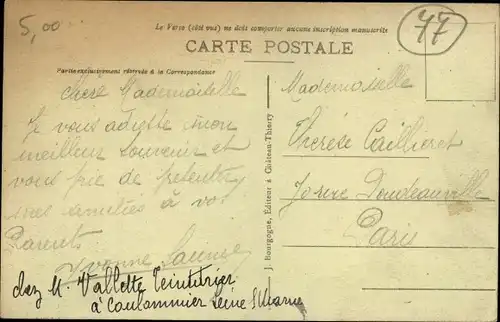 5,00
47
Le Verso (côté vue) ne doit comporter aucune inscription manuscrite
CARTE POSTALE
Partie exclusivement réservée à la Correspondance
J. Bourgogne, Editeur à Château-Thierry
Chère Mademoiselle
Je vous adresse mon
meilleur souvenir et
vous prie de présenter
mes amitiés à vos
Parents
Yvonne
chez M. Vallette Teinturier
à Coulommier Seine & Marne
Mademoiselle
Thérèse Caillieret
rue Doudeauville
Paris